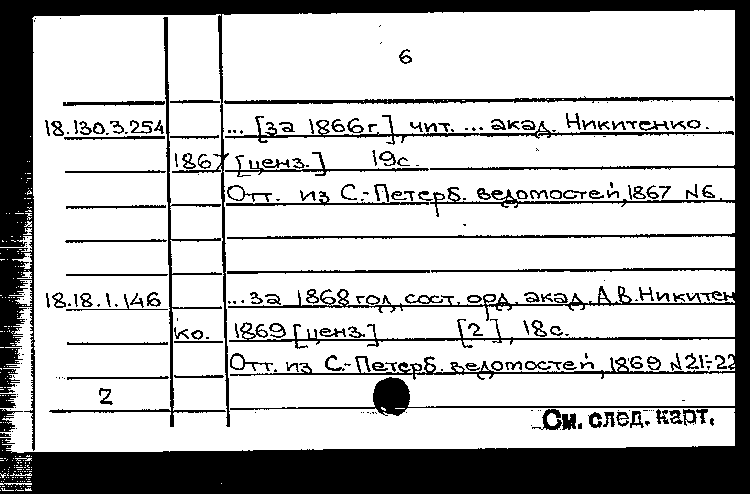 6
18.130.3.254 ... [за 1866г.], чит. ... акад. Никитенко.
1867 [ценз.] 19с.
Отт. из С.-Петерб. ведомостей, 1867 №6.
18.18.1.146 ...за 1868 год, сост. орд. акад. А.В.Никитен
ко. 1869 [ценз.] [2], 18с.
Отт. из С.-Петерб. ведомостей, 1869 №21-22
2
См. след. карт.